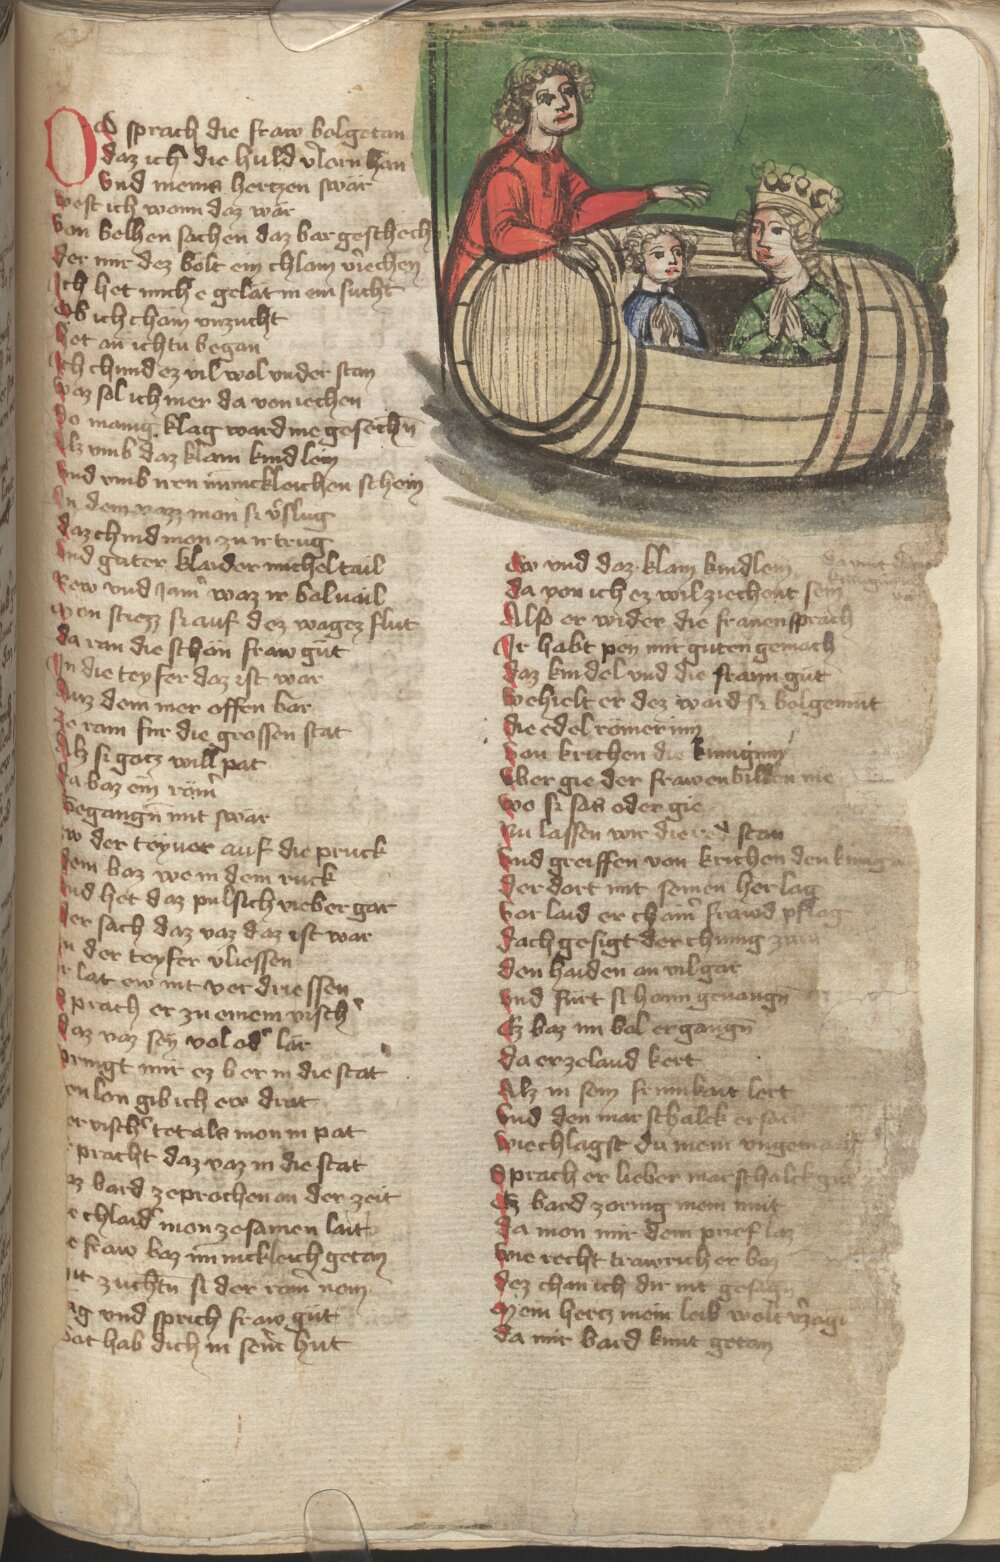 Do sprach die fraw bolgetan
daz ich die huld v̉lorn han
vnd meins hertzen swär
west ich wann daz wär
von belhen sachen daz bar geschech
der mir dez bölt ein chlain v̉iechen
Ich het mich e gelät in ein sücht
Ob ich chain vnzücht
het an ichtu began
Ich chund ez vil wol vnder stan
waz sol ich mer da von iechen
So manig klag ward nie gesechn̄
Alz vmb daz klain kindlein
vnd vmb iren minickleichen schein
In dem vazz mon si v̉slug
daz chind mon zu ir trug
vnd guter klaider michel tail
Rew vnd Jam̉ waz ir bolvail
von stiezz si auf dez wagez flut
da ran die schön fraw güt
In die teyfer daz ist war
Auz dem mer offen bar
ze ram für die grossen stat
Alz si gotz will pat
da baz ein röm̉
begangn̄ mit swär
der teyuer auf die pruck
dem baz we in dem ruck
vnd het daz pulsich vieber gar
der sach daz vaz daz ist war
In der teyfer vliessen
Ir lat ew nit ver driessen
Sprach er zu einem visch̉
daz vaz sey vol od̉ lär
pringt mir ez b er in die stat
den lon gib ich ew drat
der visch̉ tet als mon in pat
pracht daz vaz in die stat
daz bard zeprochen an der zeit
die chlaid̉ mon zesamen lait
die fraw baz minickleich getan
mit zuchtn̄ si der röm̉ nom
vnd sprich fraw güt
Got hab dich in sein̉ hüt
Ew vnd daz klain kindlein
da von ich ez wil ziechent sein
Also er wider die frauen sprach
Ir habt pen mir guten gemach
daz kindel vnd die frawn güt
behielt er dez ward si bolgemüt
die edel römerinn
von krichen die küniginn
vber gie der frawen billen nie
wo si sas oder gie
Nu lassen wir die red stan
vnd greiffen von krichen den künig
der dort mit seinem her lag
vor laid er chain̉ fräwd pflag
dach gesigt der chünig
den haiden an vil gar
vnd fürt si haim geuangn̄
Ez baz im bol ergangn̄
da er ze land kert
Alz in sein frumbait lert
vnd den marschalck er sach
wie chlagst du mein vngemach
Sprach er lieber marschalck güt
Ez bard zornig mein müt
da mon mir dem prief laz
wie recht trawrich er baz
dez chan ich dir nit gesagn̄
Mein hertz mein leib wolt v̉zagn
da mir bard kunt getan